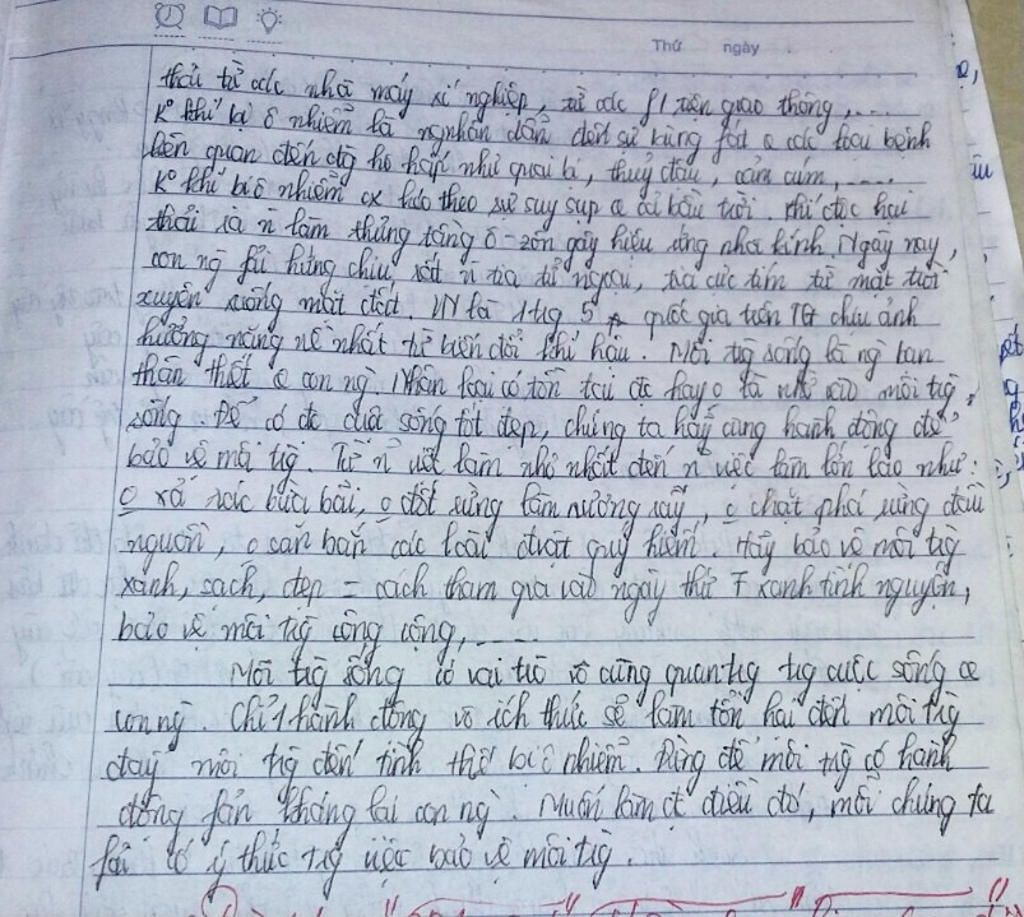 Thứ ngày
thải từ các nhà máy xí nghiệp, từ các f/tiện giao thông,....
K° khí bị ô nhiễm là ng nhân dẫn đến sự bùng fát @ các loại bệnh
liên quan đến đg hô hấp như quai bị, thuỷ đậu, cảm cúm,....
K° khí bị ô nhiễm cx kéo theo sự suy sụp @ cả bầu trời. Khí độc hại
thải ra n làm thủng tầng ô-zôn gây hiệu ứng nhà kính. Ngày nay,
con ng fải hứng chịu rất n tia tử ngoại, tia cực tím từ mặt trời
xuyên xuống mặt đất. VN là 1 tg 5 quốc gia trên TG chịu ảnh
hưởng nặng nề nhất từ biến đổi khí hậu. Môi tg sống là ng bạn
thân thiết @ con ng. Nhân loại có tồn tại đc hay o là nhờ vào môi tg
sống. Để có đc cuộc sống tốt đẹp, chúng ta hãy cùng hành động để
bảo vệ môi tg. Từ n việc làm nhỏ nhất đến n việc làm lớn lao như:
o xả rác bừa bãi, o đốt rừng làm nương rẫy, o chặt phá rừng đầu
nguồn, o săn bắn các loài đvật quý hiếm. Hãy bảo vệ môi tg
xanh, sạch, đẹp = cách tham gia vào ngày thứ 7 xanh tình nguyện,
bảo vệ môi tg công cộng,...
Môi tg sống có vai trò vô cùng quan tg tg cuộc sống @
con ng. Chỉ 1 hành động vô ích thức sẽ làm tổn hại đến môi tg
đẩy môi tg đến tình thế bị ô nhiễm. Đừng để môi tg có hành
động fản kháng lại con ng. Muốn làm đc điều đó, mỗi chúng ta
fải có ý thức tg việc bảo vệ môi tg.